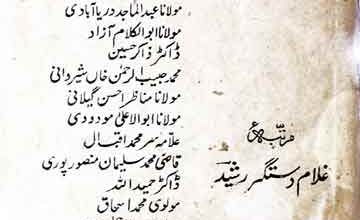 مولانا عبدالماجد دریا آبادی
مولانا ابوالکلام آزاد
ڈاکٹر ذاکر حسین
محمد حبیب الرحمٰن خاں شیروانی
مولانا مناظر احسن گیلانی
مولانا ابوالاعلیٰ مودودی
علامہ سر محمد اقبال
قاضی محمد سلیمان منصورپوری
ڈاکٹر حمید اللہ
مولوی محمد اسحاق
مرتبہ
غلام دستگیر رشید